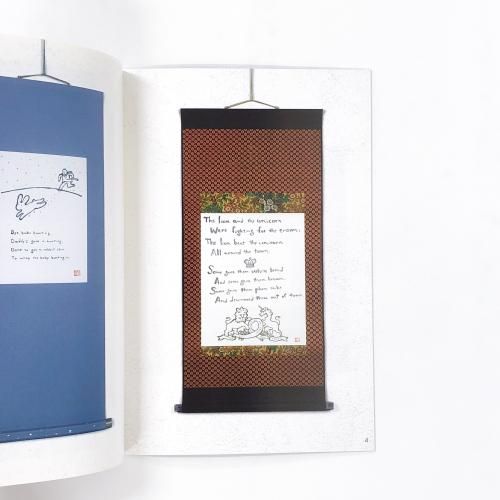 Bye, baby bunting,
Daddy's gone a-hunting,
Gone to get a rabbit skin
To wrap the baby bunting in.
The lion and the unicorn
Were fighting for the crown;
The lion beat the unicorn
All around the town.
Some gave them white bread
And some gave them brown;
Some gave them plum cake
And drummed them out of town.
4